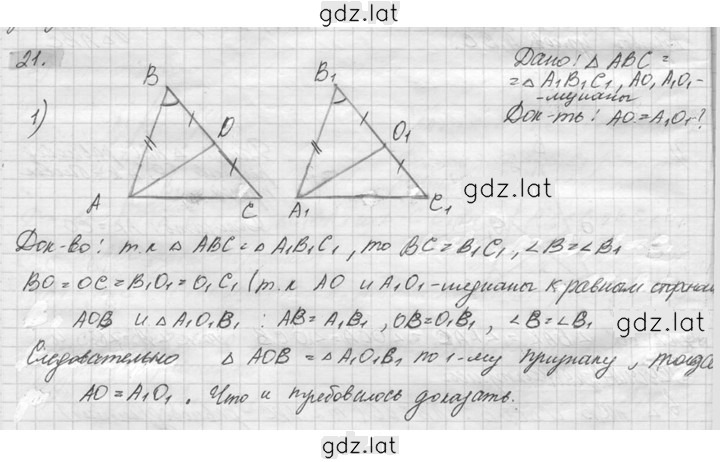 gdz.lat
21.
1)
B
O
A
C
B₁
O₁
A₁
C₁
Дано: △ ABC =
= △ A₁B₁C₁, AO, A₁O₁-
-медианы
Док-ть: AO = A₁O₁-?
gdz.lat
Док-во: т.к △ ABC = △ A₁B₁C₁, то BC = B₁C₁, ∠B = ∠B₁
BO = OC = B₁O₁ = O₁C₁ (т.к AO и A₁O₁-медианы к равным сторонам
AOB и △ A₁O₁B₁ : AB = A₁B₁, OB = O₁B₁, ∠B = ∠B₁
Следовательно △ AOB = △ A₁O₁B₁ по 1-му признаку, тогда
AO = A₁O₁. Что и требовалось доказать.
gdz.lat